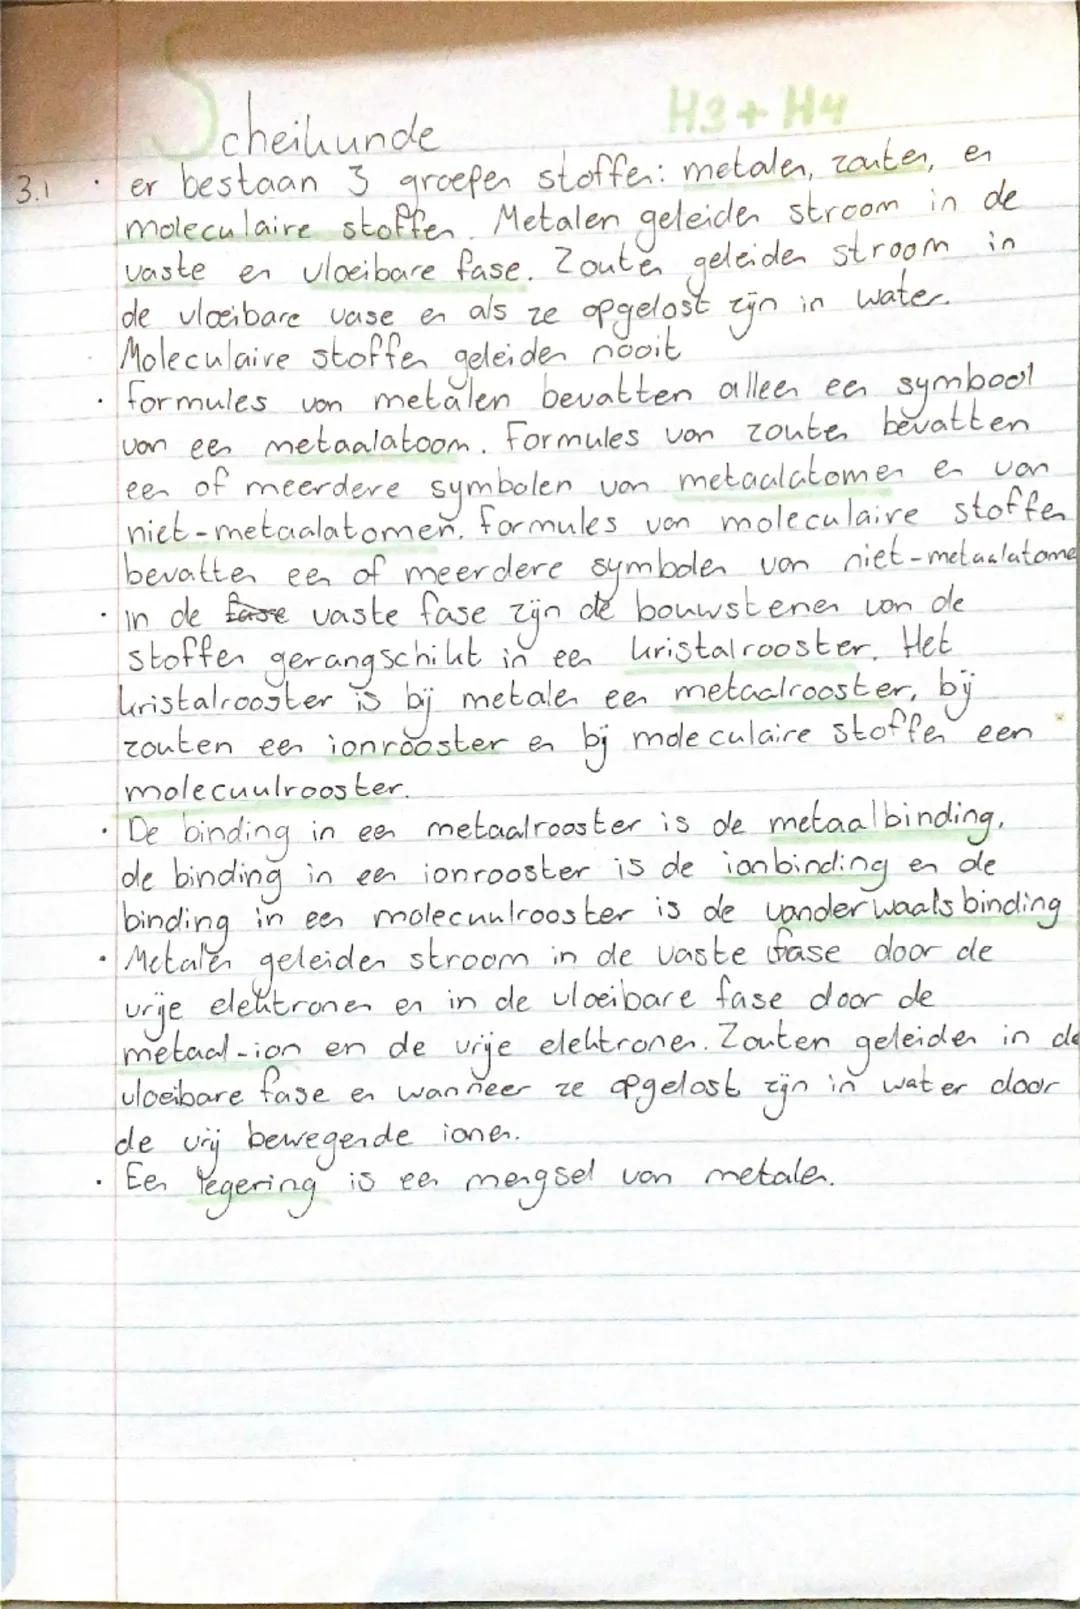 Scheikunde H3 + H4
3.1 · er bestaan 3 groepen stoffen: metalen, zouten, en
moleculaire stoffen. Metalen geleiden stroom in de
vaste en vloeibare fase. Zouten geleiden stroom in
de vloeibare vase en als ze opgelost zijn in water.
Moleculaire stoffen geleiden nooit
· formules van metalen bevatten alleen een symbool
van een metaalatoom. Formules van zouten bevatten
een of meerdere symbolen van metaalatomen en van
niet-metaalatomen. formules van moleculaire stoffen
bevatten een of meerdere symbolen van niet-metaalatome
· in de fase vaste fase zijn de bouwstenen van de
stoffen gerangschikt in een kristalrooster. Het
kristalrooster is bij metalen een metaalrooster, bij
zouten een ionrooster en bij moleculaire stoffen een
molecuulrooster.
· De binding in een metaalrooster is de metaalbinding,
de binding in een ionrooster is de ionbinding en de
binding in een molecuulrooster is de vanderwaalsbinding
· Metalen geleiden stroom in de vaste fase door de
vrije elektronen en in de vloeibare fase door de
metaal-ion en de vrije elektronen. Zouten geleiden in de
vloeibare fase en wanneer ze opgelost zijn in water door
de vrij bewegende ionen.
· Een legering is een mengsel van metalen.